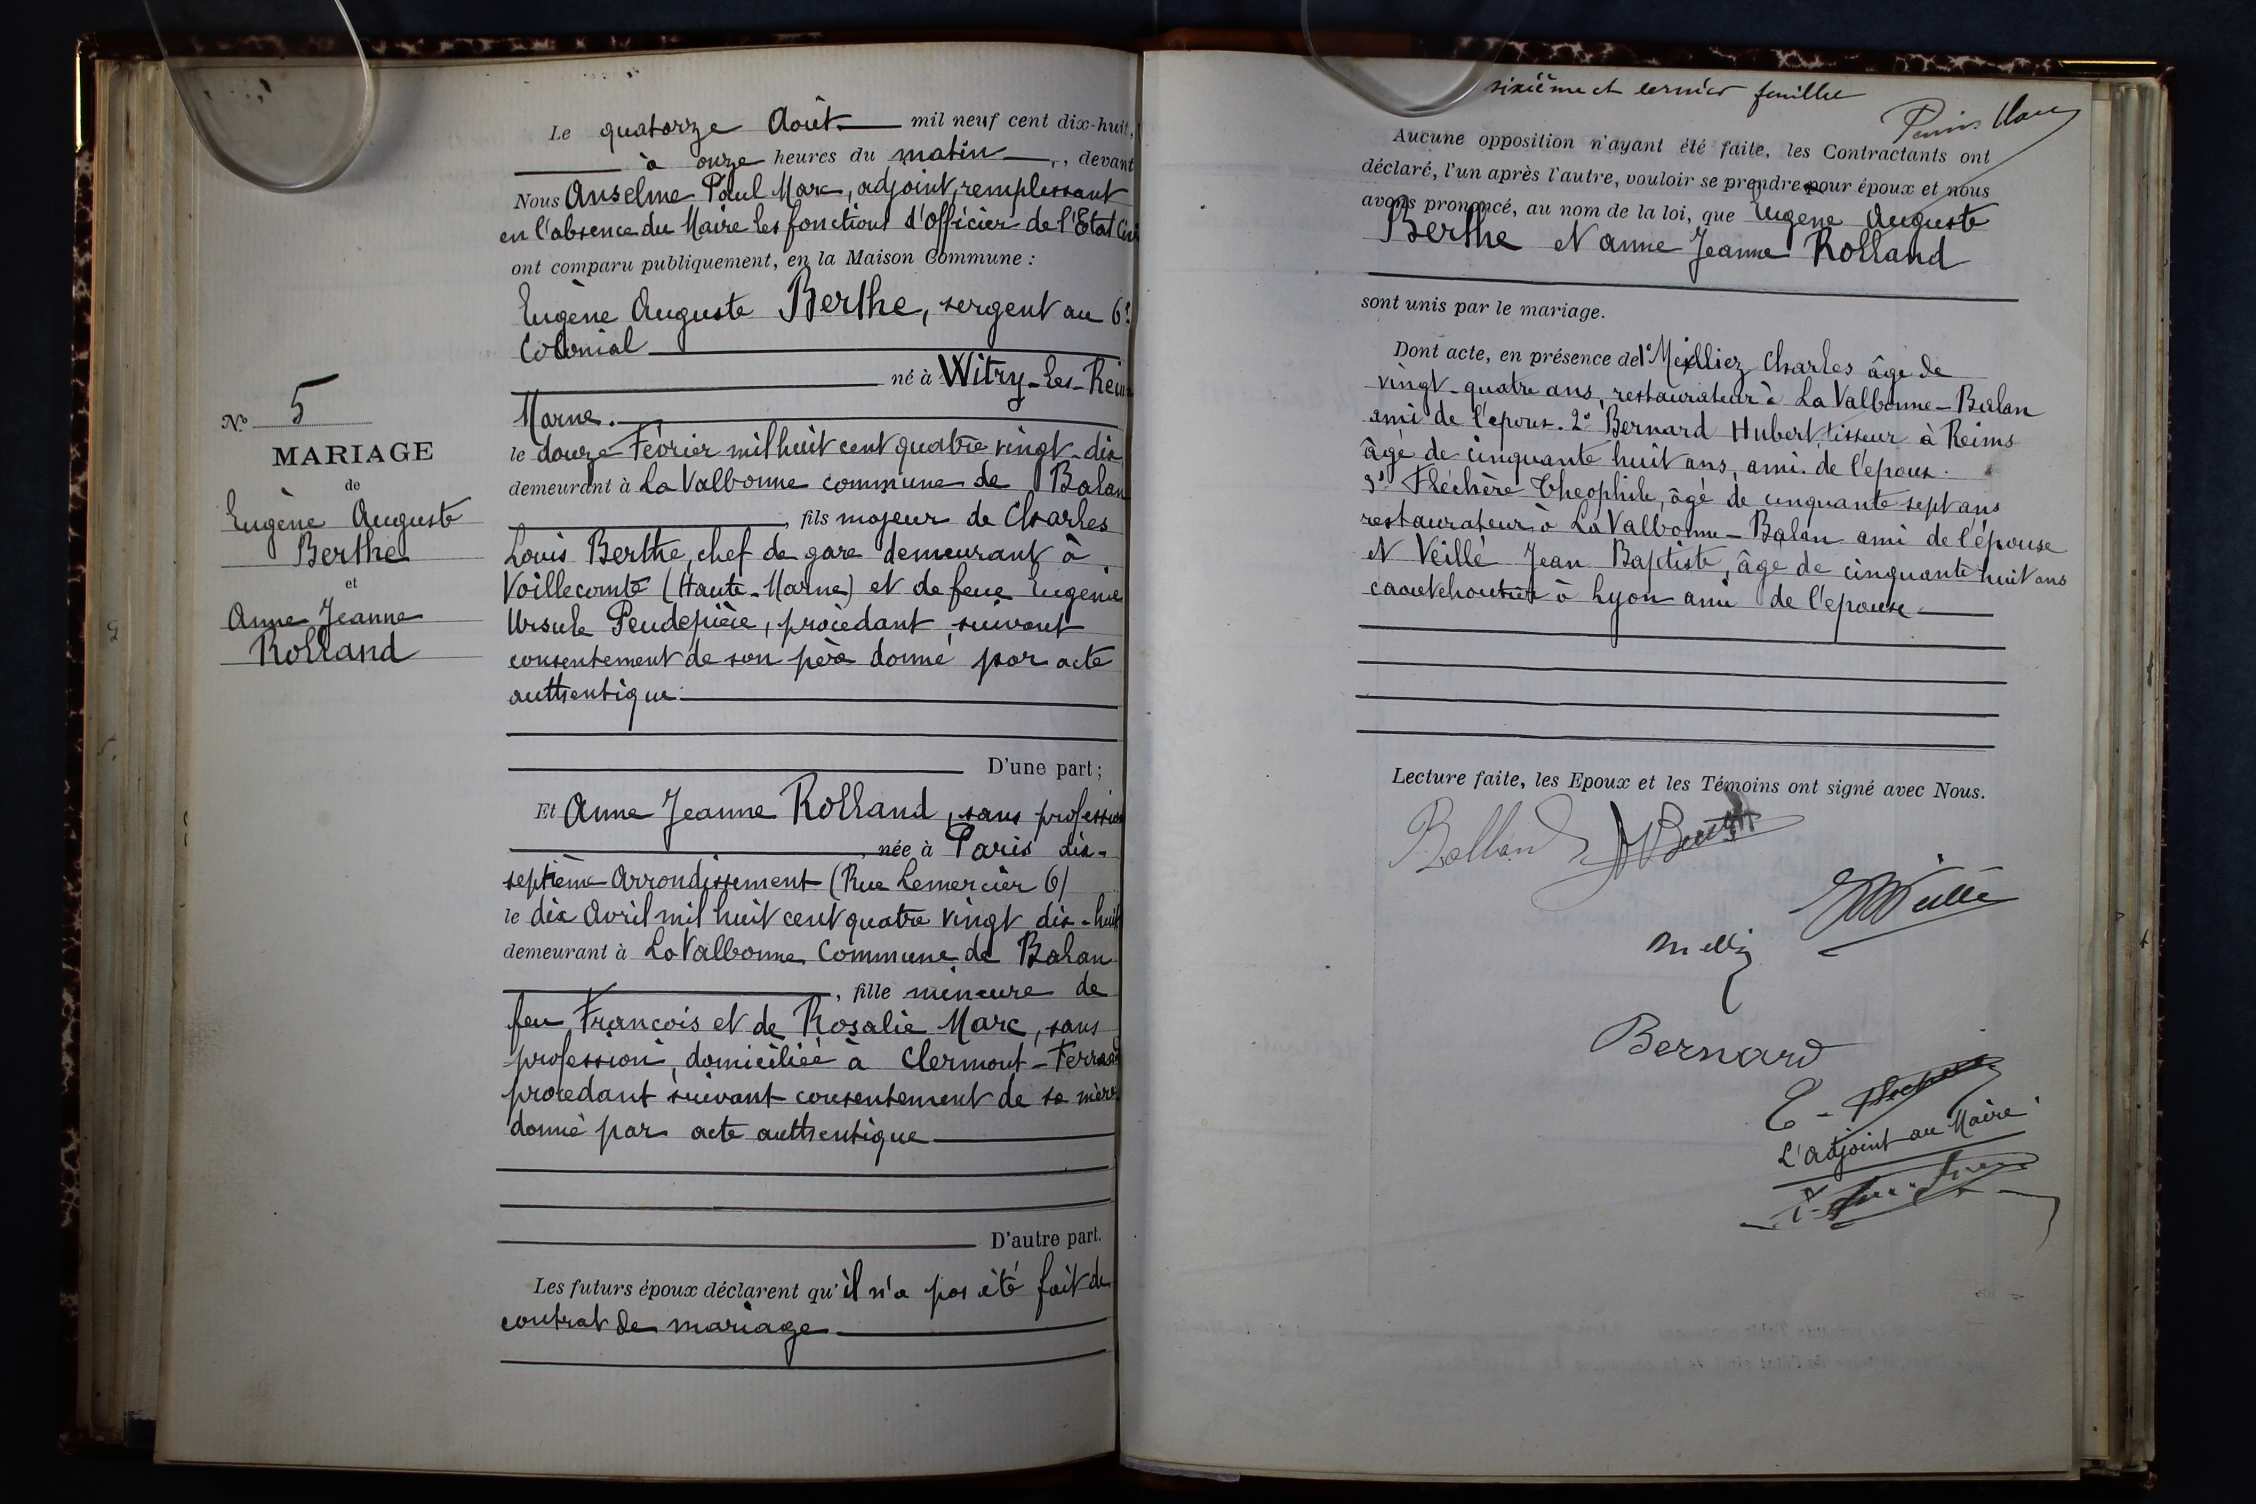 Nº 5
MARIAGE
de
Eugène Auguste
Berthe
et
Anne Jeanne
Rolland
Le quatorze Août mil neuf cent dix-huit,
à onze heures du matin, devant
Nous Anselme Paul Marc, adjoint, remplissant
en l'absence du Maire les fonctions d'officier de l'Etat Civi
ont comparu publiquement, en la Maison Commune :
Eugène Auguste Berthe, sergent au 6e
Colonial
né à Witry-les-Reim
Marne.
le douze Février mil huit cent quatre vingt-dix
demeurant à La Valbonne commune de Balan
, fils majeur de Charles
Louis Berthe, chef de gare demeurant à
Voillecomte (Haute-Marne) et de feue Eugenie
Ursule Peudepièce, procèdant suivant
consentement de son père donné par acte
authentique.
D'une part ;
Et Anne Jeanne Rolland, sans profession
, née à Paris dix-
septième Arrondissement (Rue Lemercier 6)
le dix Avril mil huit cent quatre vingt dix-huit
demeurant à La Valbonne Commune de Balan
, fille mineure de
feu François et de Rosalie Marc, sans
profession, domiciliée à Clermont-Ferrand
procedant suivant consentement de sa mère
donné par acte authentique
D'autre part.
Les futurs époux déclarent qu'il n'a pas été fait de
contrat de mariage
sixième et dernier feuillet
Aucune opposition n'ayant été faite, les Contractants ont
déclaré, l'un après l'autre, vouloir se prendre pour époux et nous
avons prononcé, au nom de la loi, que Eugène Auguste
Berthe et Anne Jeanne Rolland
sont unis par le mariage.
Dont acte, en présence de 1° Meilliez Charles âge de
vingt-quatre ans, restaurateur à La Valbonne-Balan
ami de l'epoux. 2° Bernard Hubert tisseur à Reims
âgé de cinquante huit ans, ami de l'époux.
3° Fléchère Theophile, âgé de cinquante-sept ans
restaurateur à La Valbonne-Balan ami de l'épouse
et Veillé Jean Baptiste, âge de cinquante huit ans
caoutchoutier à Lyon ami de l'epouse
Lecture faite, les Epoux et les Témoins ont signé avec Nous.
Rolland
Veillé
Bernard
L'adjoint au Maire